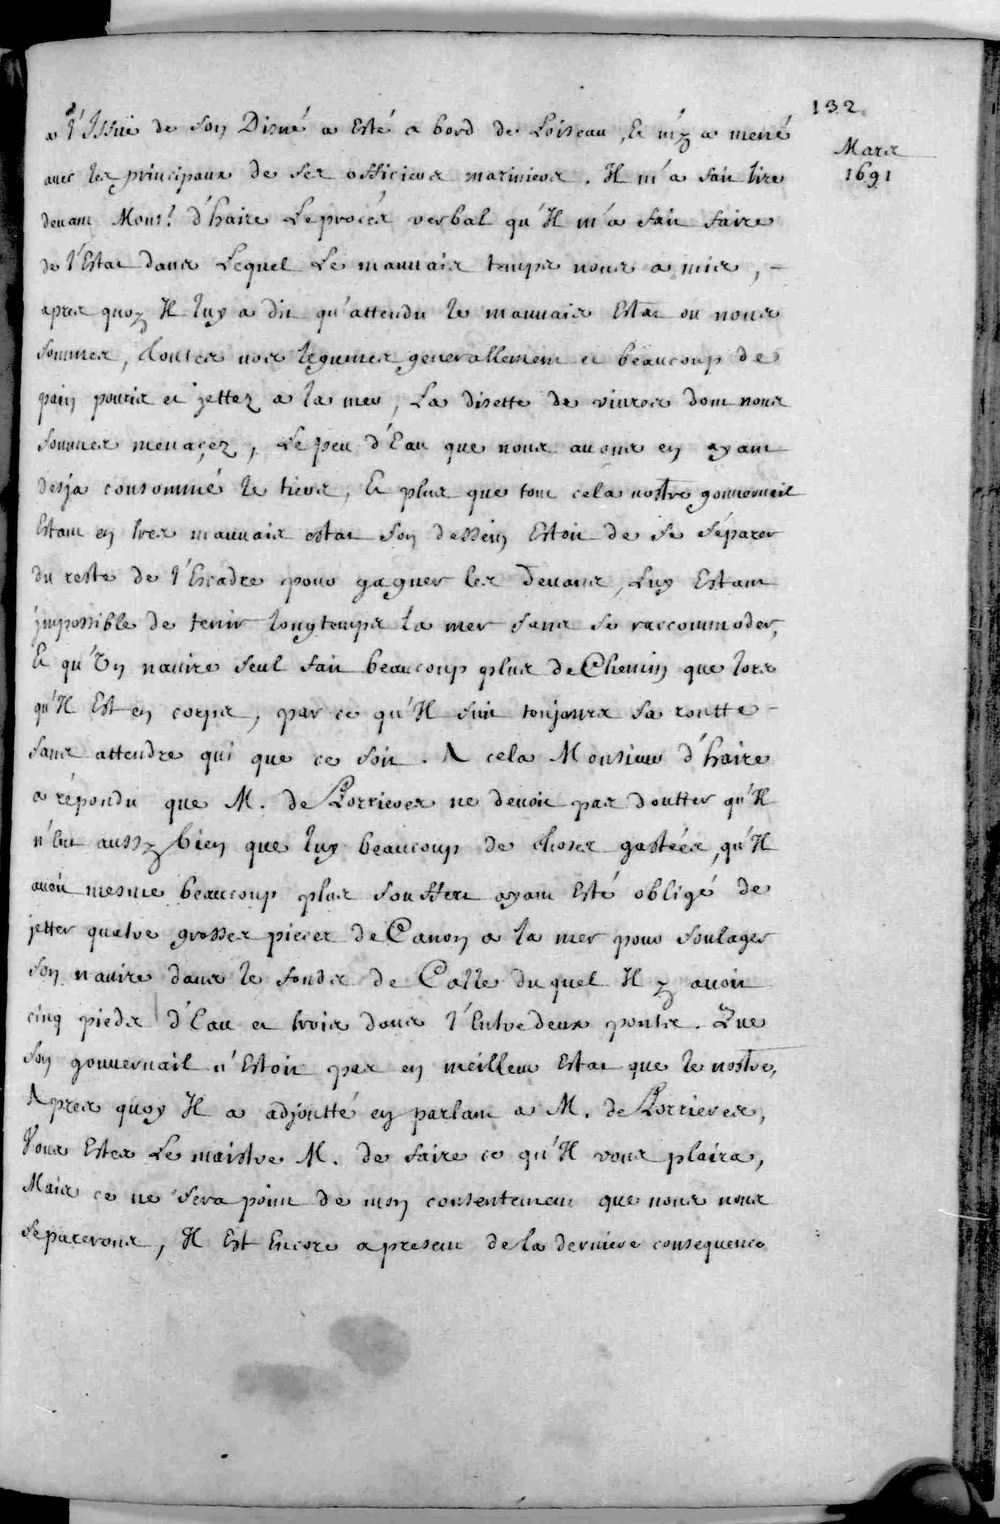 132
Mars
1691
a l'Issüe de son Disné a Esté a bord de Loiseau, Et m'y a mené
avec les principaux de ses officiers mariniers. Il m'a fait lire
devant Mons.r d'haire Le procés verbal qu'Il m'a fait faire
de l'Estat dans Lequel Le mauvais temps nous a mis,
apres quoy Il luy a dit qu'attendu le mauvais Estat ou nous
sommes, toutes nos legumes generallement et beaucoup de
pain pouris et jettez a la mer, La disette de vivres dont nous
sommes menaçez, Le peu d'Eau que nous avons en ayant
desja consommé le tiers, Et plus que tout cela nostre gouvernail
Estant en tres mauvais estat son dessein Estoit de se séparer
du reste de l'Escadre pour gagner les devans, Luy Estant
impossible de tenir longtemps la mer sans se raccommoder,
Et qu'Un navire seul fait beaucoup plus de Chemin que lors
qu'Il Est en corps, par ce qu'Il suit toujours sa routte
sans attendre qui que ce soit. A cela Monsieur d'haire
a répondu que M. de Porrieres ne devoit pas doutter qu'Il
n'Eut aussy bien que luy beaucoup de choses gastées, qu'Il
avoit mesme beaucoup plus souffert ayant Esté obligé de
jetter quatre grosses pieces de Canon a la mer pour soulager
son navire dans le fonds de Calle duquel Il y avoit
cinq pieds d'Eau et trois dans l'Entredeux ponts. Que
son gouvernail n'Estoit pas en meilleur Estat que le nostre,
Apres quoy Il a adjoutté en parlant a M. de Porrieres,
Vous Estes Le maistre M. de faire ce qu'Il vous plaira,
Mais ce ne sera point de mon consentement que nous nous
separerons, Il Est Encore apresent de la derniere consequence